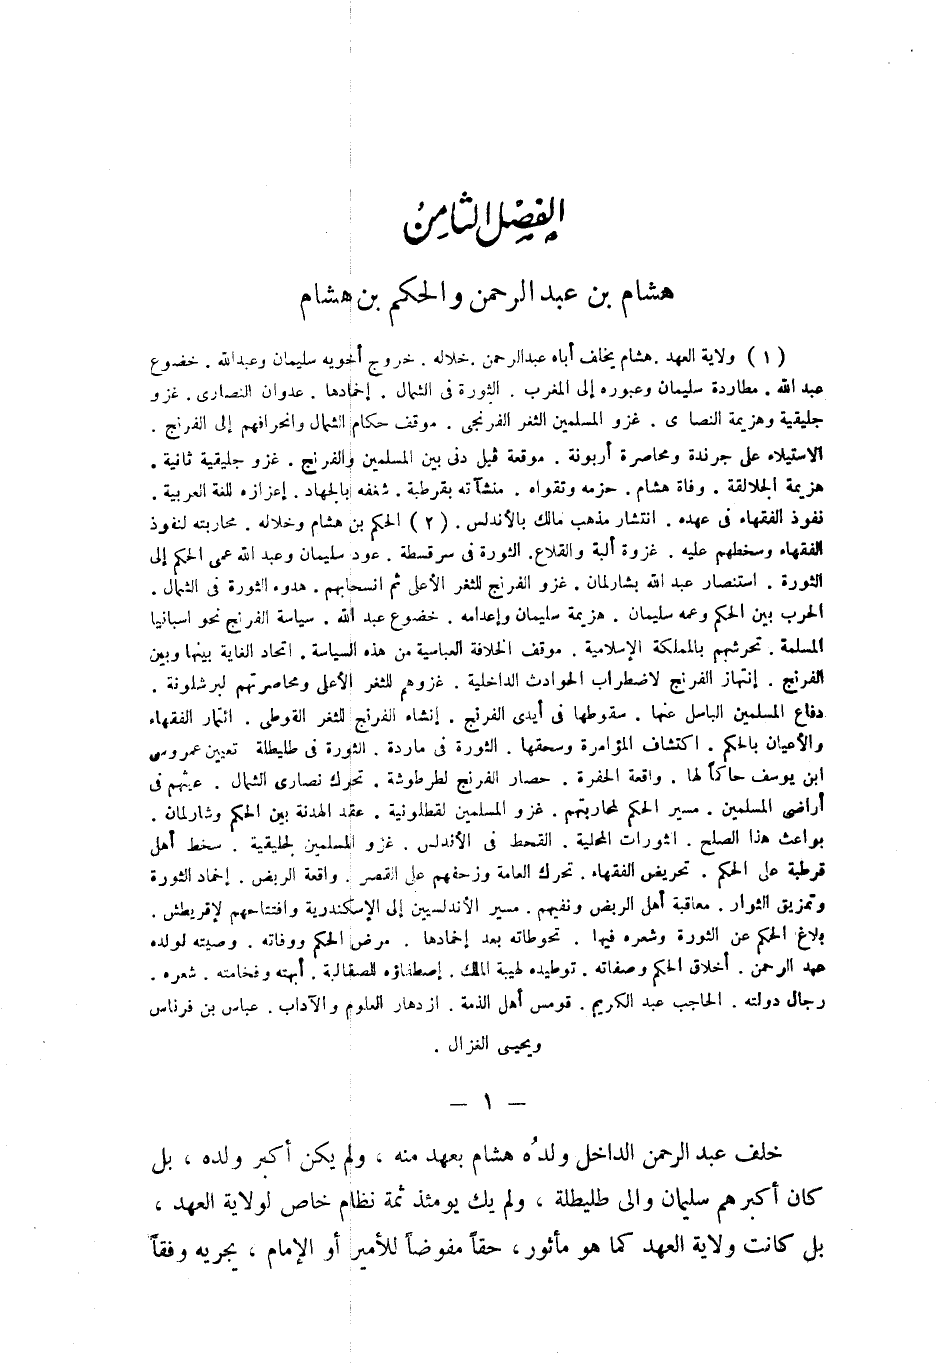 الفصل الثامن
هشام بن عبد الرحمن والحكم بن هشام
(١) ولاية العهد . هشام يخلف أباه عبد الرحمن . خلاله . خروج أخويه سليمان وعبدالله . خضوع
عبد الله . مطاردة سليمان وعبوره إلى المغرب . الثورة فى الشمال . إخمادها . عدوان النصارى . غزو
جليقية وهزيمة النصا ى . غزو المسلمين الثغر الفرنجى . موقف حكام الشمال وانحرافهم إلى الفرنج .
الاستيلاء على جرندة ومحاصرة أربونة . موقعة ڤيل دنى بين المسلمين والفرنج . غزو جليقية ثانية .
هزيمة الجلالقة . وفاة هشام . حزمه وتقواه . منشآته بقرطبة . شغفه بالجهاد . إعزازه للغة العربية .
نفوذ الفقهاء فى عهده . انتشار مذهب مالك بالأندلس . (٢) الحكم بن هشام وخلاله . محاربته لنفوذ
الفقهاء وسخطهم عليه . غزوة ألبة والقلاع . الثورة فى سرقسطة . عود سليمان وعبد الله عمى الحكم إلى
الثورة . استنصار عبد الله بشارلمان . غزو الفرنج للثغر الأعلى ثم انسحابهم . هدوء الثورة فى الشمال .
الحرب بين الحكم وعمه سليمان . هزيمة سليمان وإعدامه . خضوع عبد الله . سياسة الفرنج نحو اسبانيا
المسلمة . تحرشهم بالمملكة الإسلامية . موقف الخلافة العباسية من هذه السياسة . اتحاد الغاية بينها وبين
الفرنج . إنتهاز الفرنج لاضطراب الحوادث الداخلية . غزوهم للثغر الأعلى ومحاصرتهم لبرشلونة .
دفاع المسلمين الباسل عنها . سقوطها فى أيدى الفرنج . إنشاء الفرنج للثغر القوطى . ائتمار الفقهاء
والأعيان بالحكم . اكتشاف المؤامرة وسحقها . الثورة فى ماردة . الثورة فى طليطلة تعيين عمروس
ابن يوسف حاكماً لها . واقعة الحفرة . حصار الفرنج لطرطوشة . تحرك نصارى الشمال . عيثهم فى
أراضى المسلمين . مسير الحكم لمحاربتهم . غزو المسلمين لقطلونية . عقد الهدنة بين الحكم وشارلمان .
بواعث هذا الصلح . الثورات المحلية . القحط فى الأندلس . غزو المسلمين لجليقية . سخط أهل
قرطبة على الحكم . تحريض الفقهاء . تحرك العامة وزحفهم على القصر . واقعة الربض . إخماد الثورة
وتمزيق الثوار . معاقبة أهل الربض ونفيهم . مسير الأندلسيين إلى الإسكندرية وافتتاحهم لإقريطش .
بلاغ الحكم عن الثورة وشعره فيها . تحوطاته بعد إخمادها . مرض الحكم ووفاته . وصيته لولده
عبد الرحمن . أخلاق الحكم وصفاته . توطيده لهيبة الملك . إصطفاؤه للصقالبة . أبهته وفخامته . شعره .
رجال دولته . الحاجب عبد الكريم . قومس أهل الذمة . ازدهار العلوم والآداب . عباس بن فرناس
ويحيى الغزال .
— ١ —
خلف عبد الرحمن الداخل ولدُه هشام بعهد منه ، ولم يكن أكبر ولده ، بل
كان أكبرهم سليمان والى طليطلة ، ولم يك يومئذ ثمة نظام خاص لولاية العهد ،
بل كانت ولاية العهد كما هو مأثور ، حقاً مفوضاً للأمير أو الإمام ، يجريه وفقاً